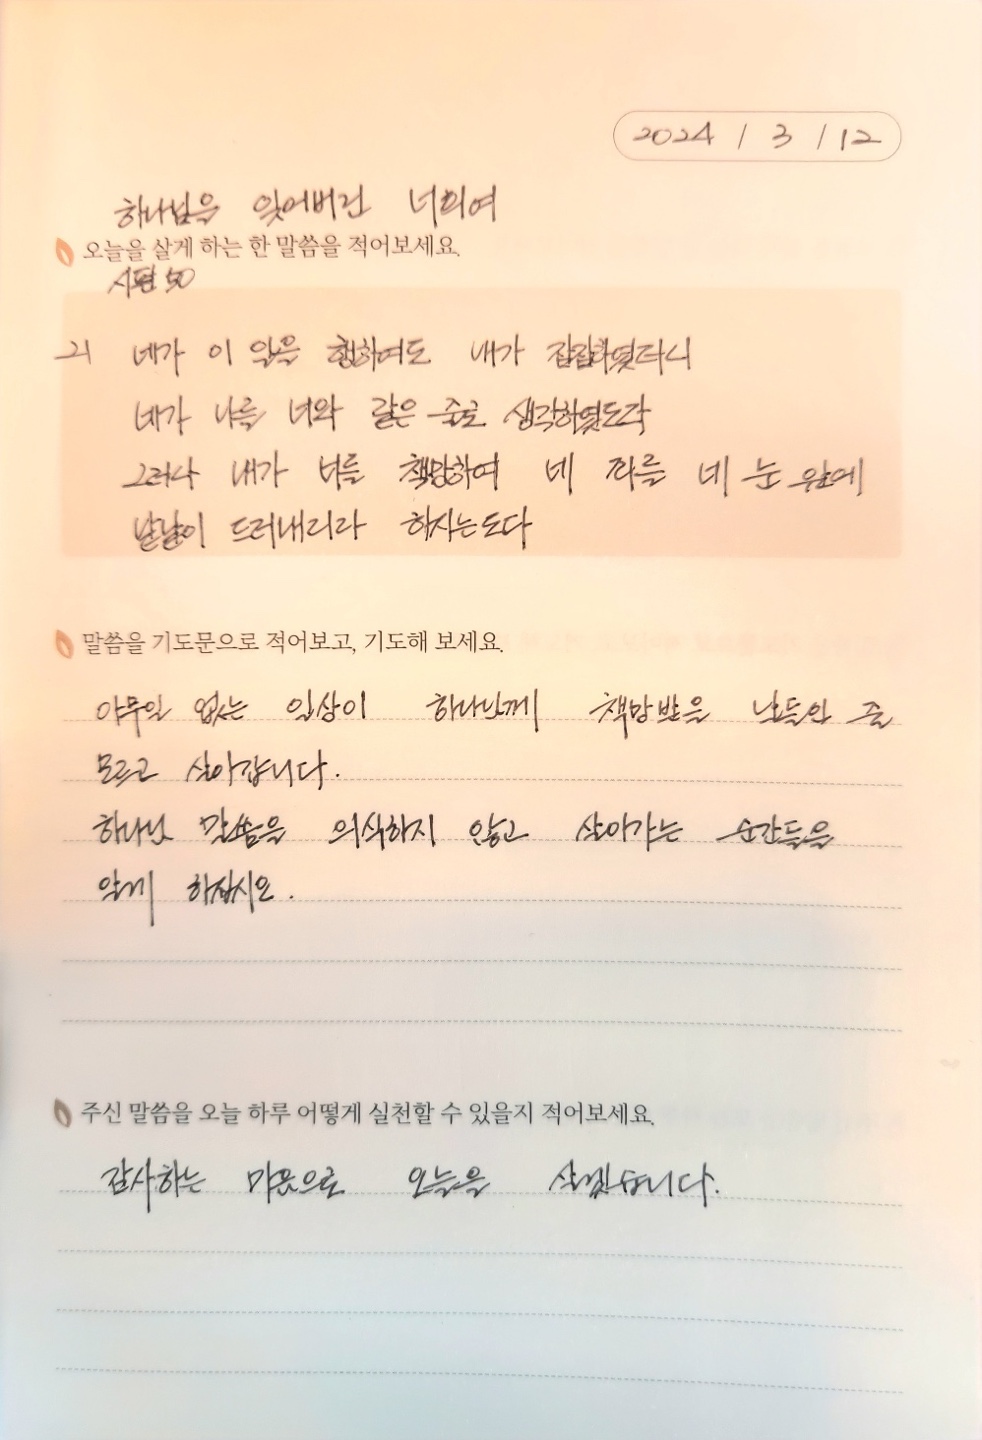 2024 / 3 / 12
하나님을 잊어버린 너희여
오늘을 살게 하는 한 말씀을 적어보세요.
시편 50
21 네가 이 일을 행하여도 내가 잠잠하였더니
네가 나를 너와 같은 줄로 생각하였도다
그러나 내가 너를 책망하여 네 죄를 네 눈 앞에
낱낱이 드러내리라 하시는도다
말씀을 기도문으로 적어보고, 기도해 보세요.
아무일 없는 일상이 하나님께 책망받을 날들인 줄
모르고 살아갑니다.
하나님 말씀을 의식하지 않고 살아가는 순간들을
알게 하십시오.
주신 말씀을 오늘 하루 어떻게 실천할 수 있을지 적어보세요.
감사하는 마음으로 오늘을 살겠습니다.